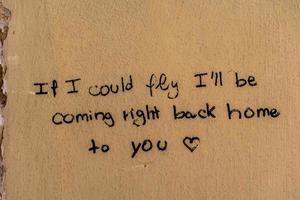 If I could fly I'll be
coming right back home
to you ♡